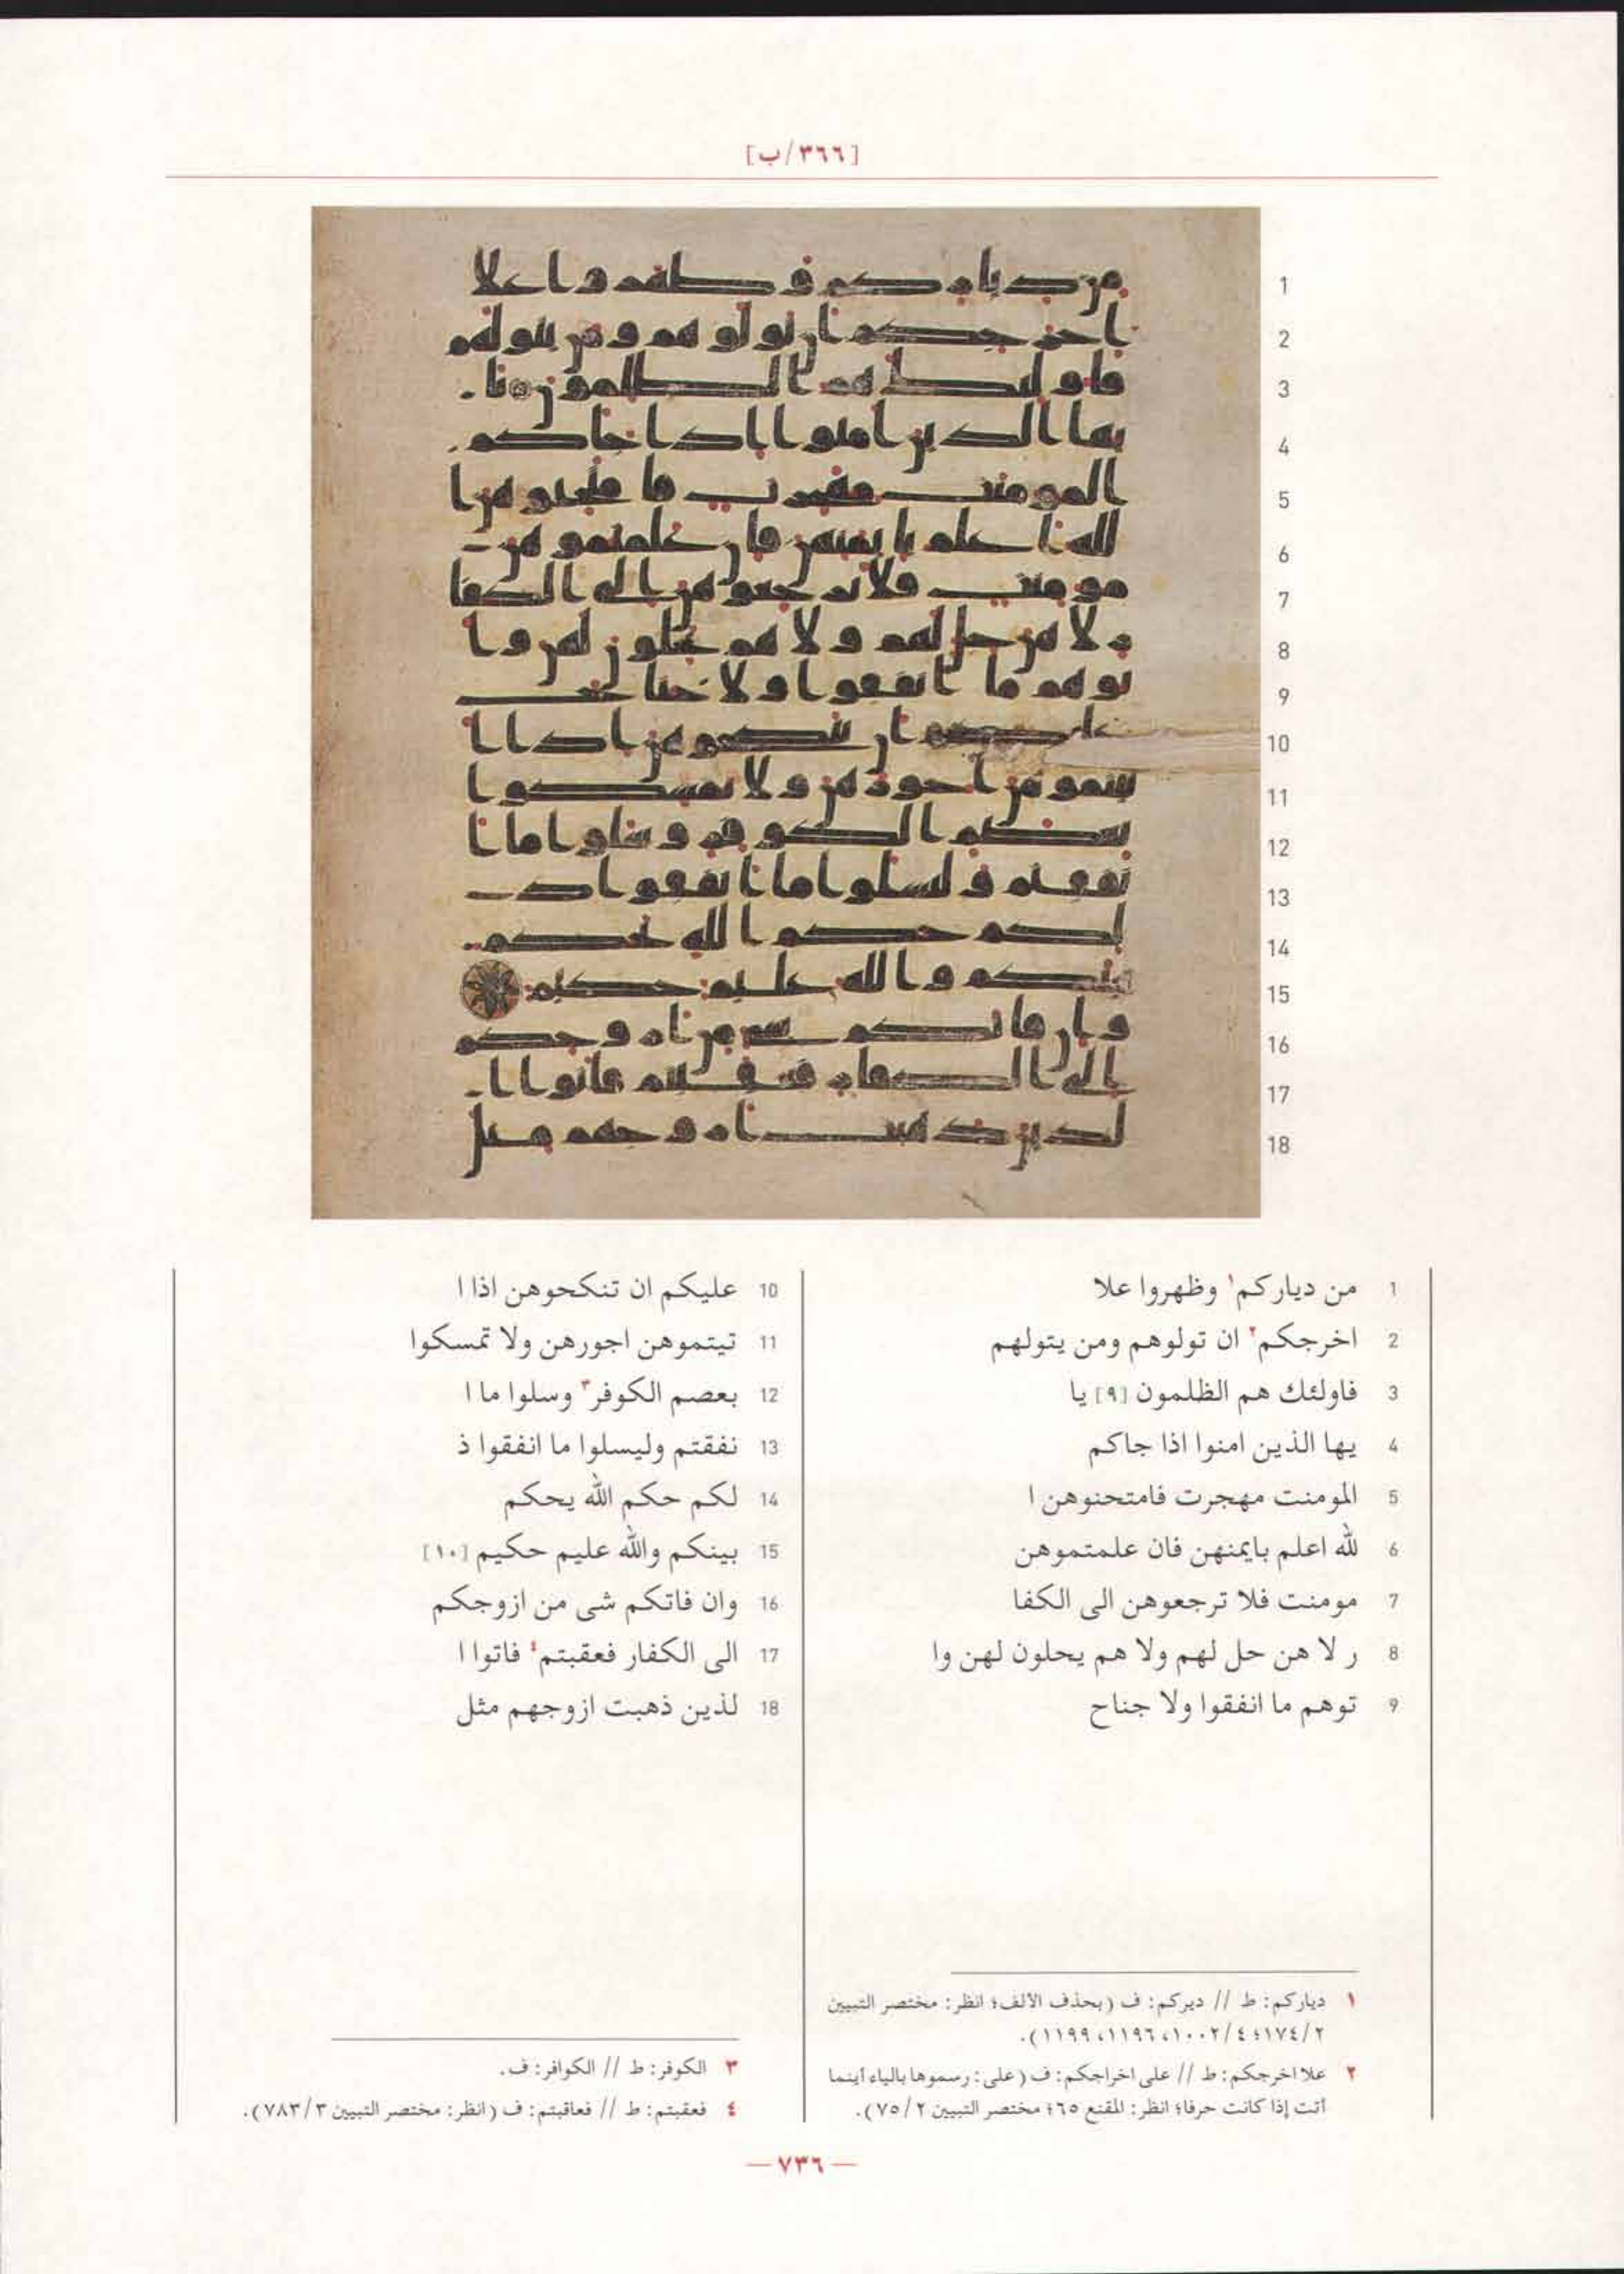 [٣٦٦/ب]
1 من دياركم١ وظهروا علا
2 اخرجكم٢ ان تولوهم ومن يتولهم
3 فاولئك هم الظلمون [٩] يا
4 يها الذين امنوا اذا جاكم
5 المومنت مهجرت فامتحنوهن ا
6 لله اعلم بايمنهن فان علمتموهن
7 مومنت فلا ترجعوهن الى الكفا
8 ر لا هن حل لهم ولا هم يحلون لهن وا
9 توهم ما انفقوا ولا جناح
10 عليكم ان تنكحوهن اذا ا
11 تيتموهن اجورهن ولا تمسكوا
12 بعصم الكوفر٣ وسلوا ما ا
13 نفقتم وليسلوا ما انفقوا ذ
14 لكم حكم الله يحكم
15 بينكم والله عليم حكيم [١٠]
16 وان فاتكم شى من ازوجكم
17 الى الكفار فعقبتم٤ فاتوا ا
18 لذين ذهبت ازوجهم مثل
١ دياركم: ط // ديركم: ف (بحذف الألف؛ انظر: مختصر التبيين
٢/١٧٤؛ ٤/١٠٠٢، ١١٩٦، ١١٩٩).
٢ علا اخرجكم: ط // على اخراجكم: ف (على: رسموها بالياء أينما
أتت إذا كانت حرفا؛ انظر: المقنع ٦٥؛ مختصر التبيين ٢/٧٥).
٣ الكوفر: ط // الكوافر: ف.
٤ فعقبتم: ط // فعاقبتم: ف (انظر: مختصر التبيين ٣/٧٨٣).
— ٧٣٦ —